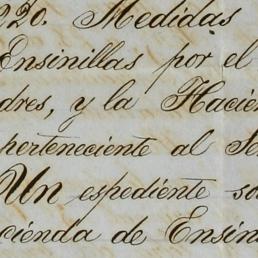 22o. Medidas
Ensinillas por el
dres, y la Hacien
perteneciente al Se
Un espediente so
cienda de Ensin